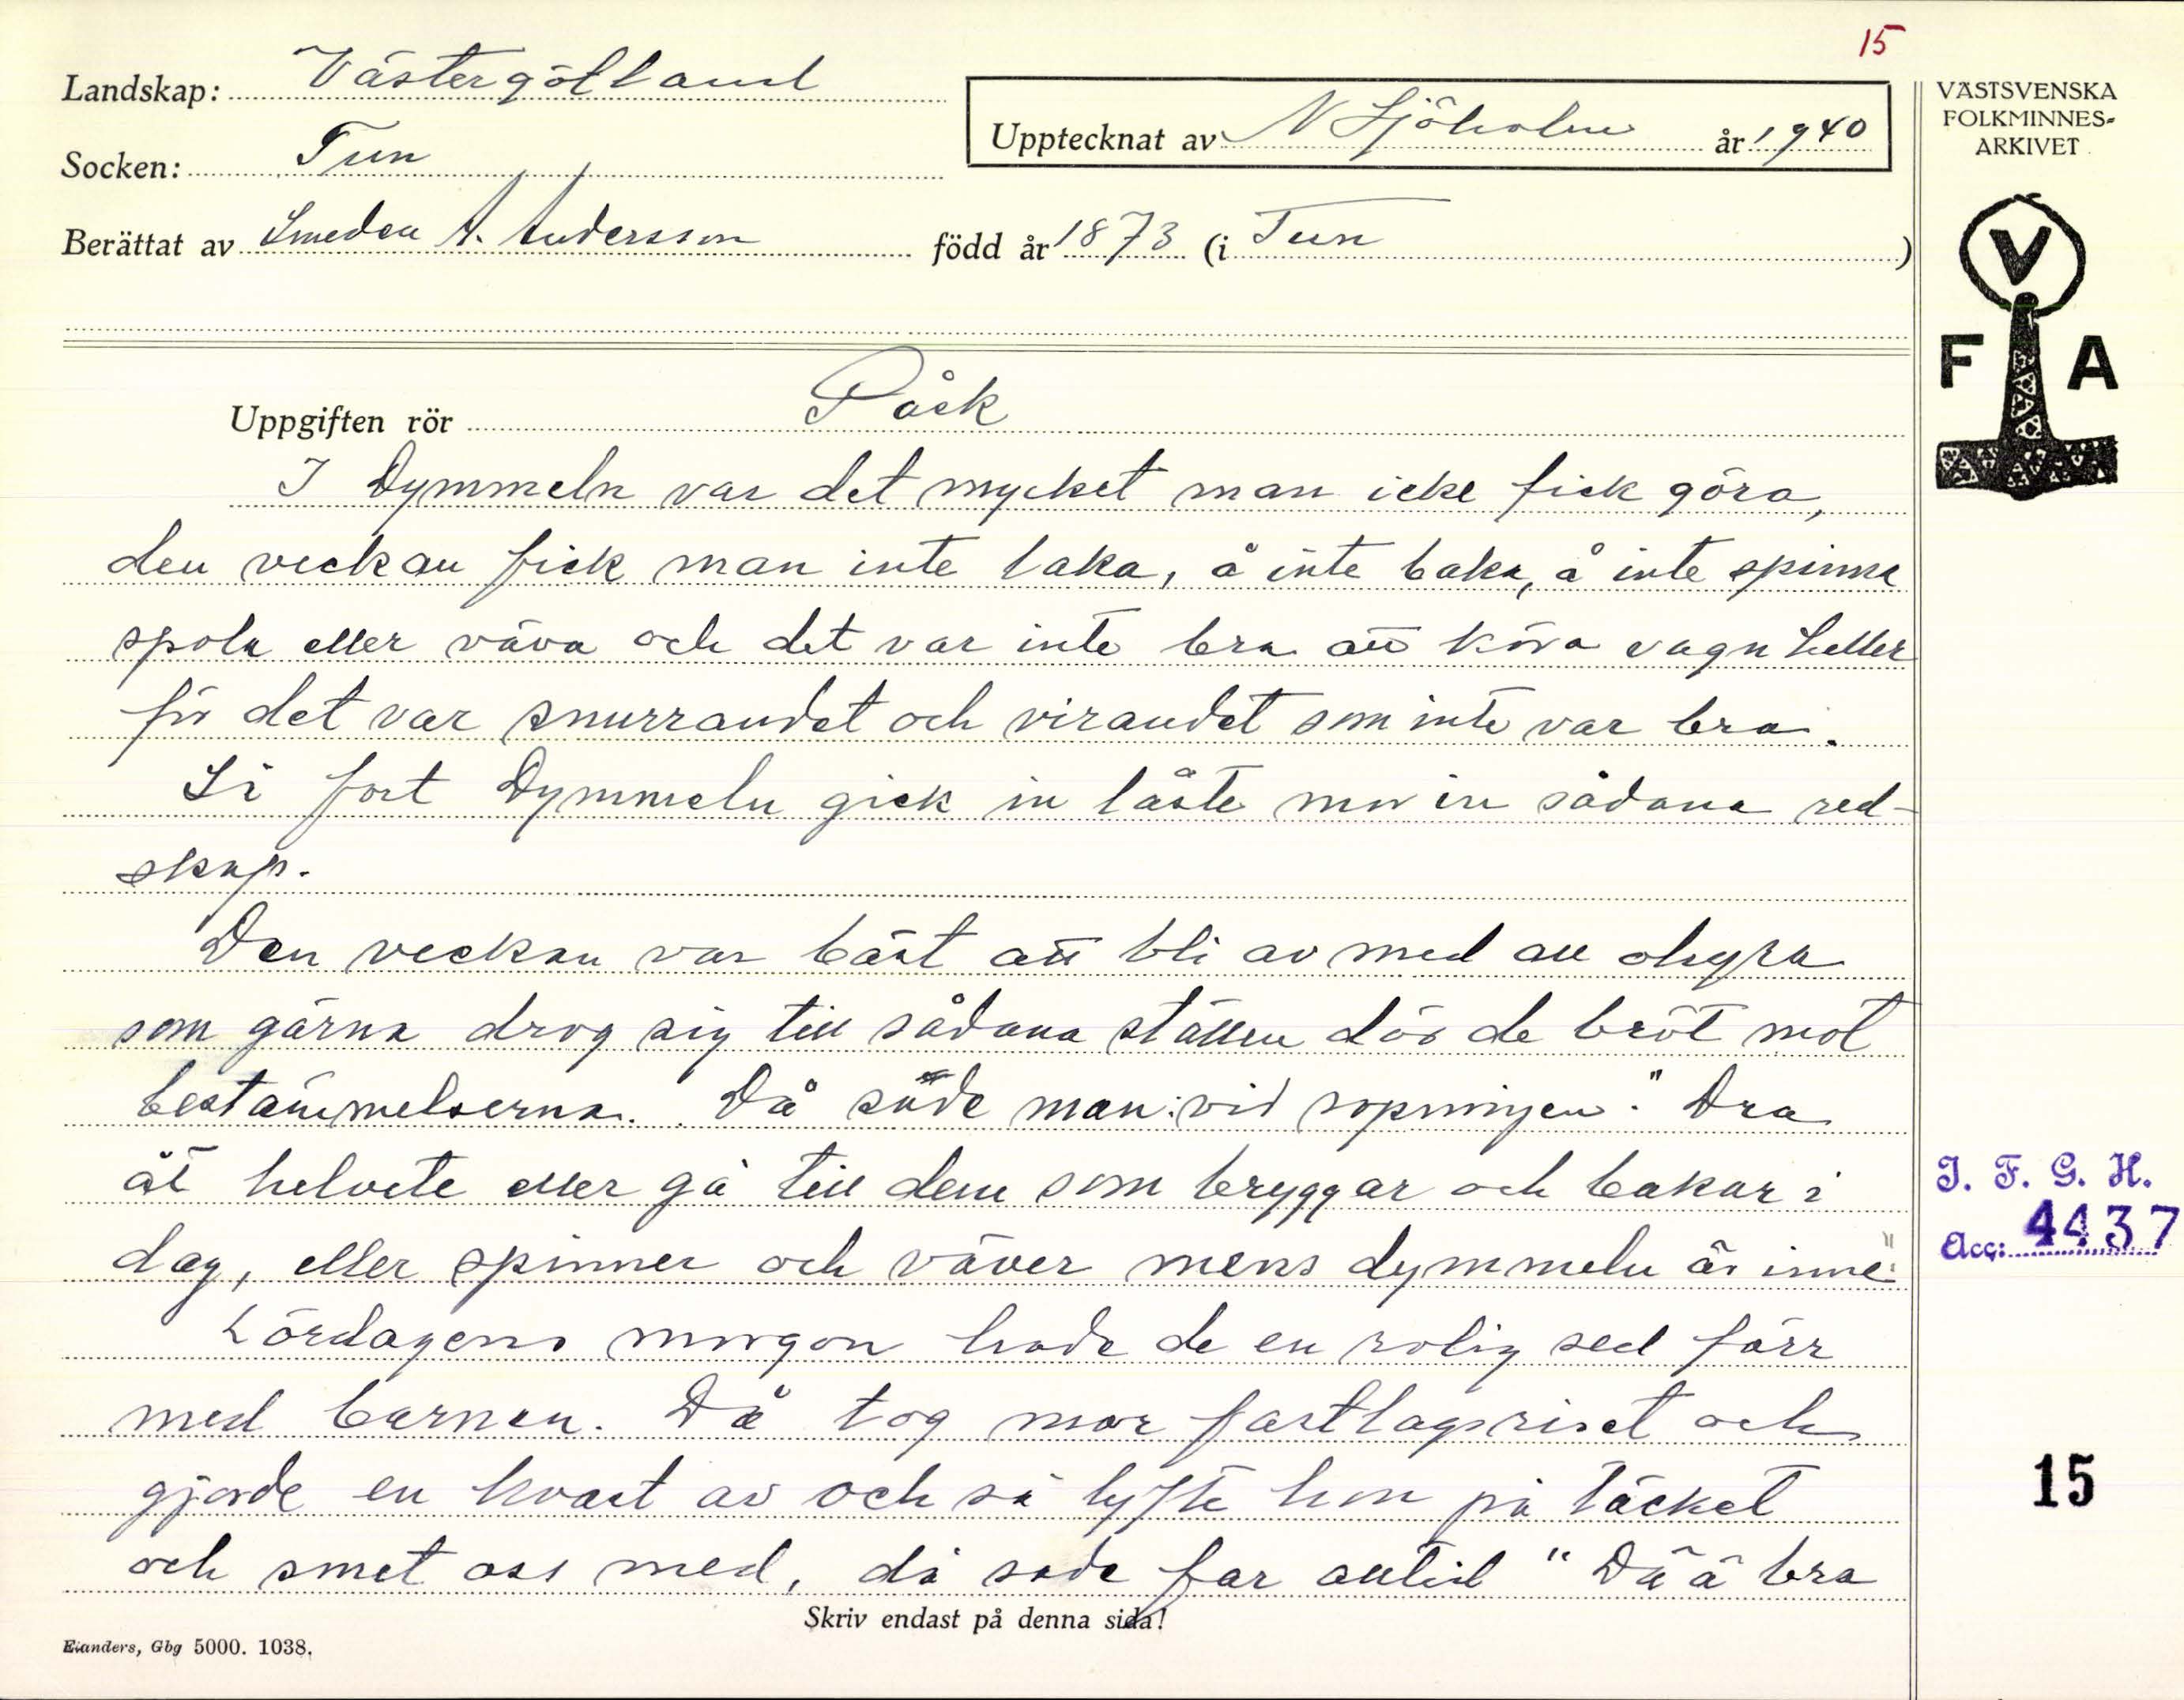 15
Landskap: Västergötland
Upptecknat av N Sjöholm år 1940
VÄSTSVENSKA
FOLKMINNES-
ARKIVET
Socken: Tun
Berättat av Smeden A. Andersson född år 1873 (i Tun)
V
F A
Uppgiften rör Påsk
I Dymmeln var det mycket man icke fick göra,
den veckan fick man inte baka, å inte spinna
spola eller väva och det var inte bra att köra vagn heller
för det var snurrandet och virandet som inte var bra.
Så fort Dymmeln gick in låste mor in sådana red-
skap.
Den veckan var bäst att bli av med all ohyra
som gärna drog sig till sådana ställen där de bröt mot
bestämmelserna. Då sade man: vid sopningen. "Dra
åt helvete eller gå till dem som bryggar och bakar i
dag, eller spinner och väver mens dymmeln är inne"
Lördagens morgon hade de en rolig sed förr
med barnen. Då tog mor fastlagsriset och
gjorde en kvast av och så lyfte hon på täcket
och smet oss med, då sade far alltid "Dä ä bra
Skriv endast på denna sida!
Elanders, Gbg 5000. 1038.
I. F. G. H.
Acc: 4437
15